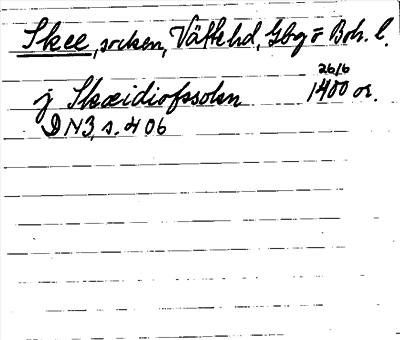 Skee, socken, Vätte hd, Gbg o Boh. l.
j Skæidiofssokn 26/6 1400 or.
DN3, s. 406